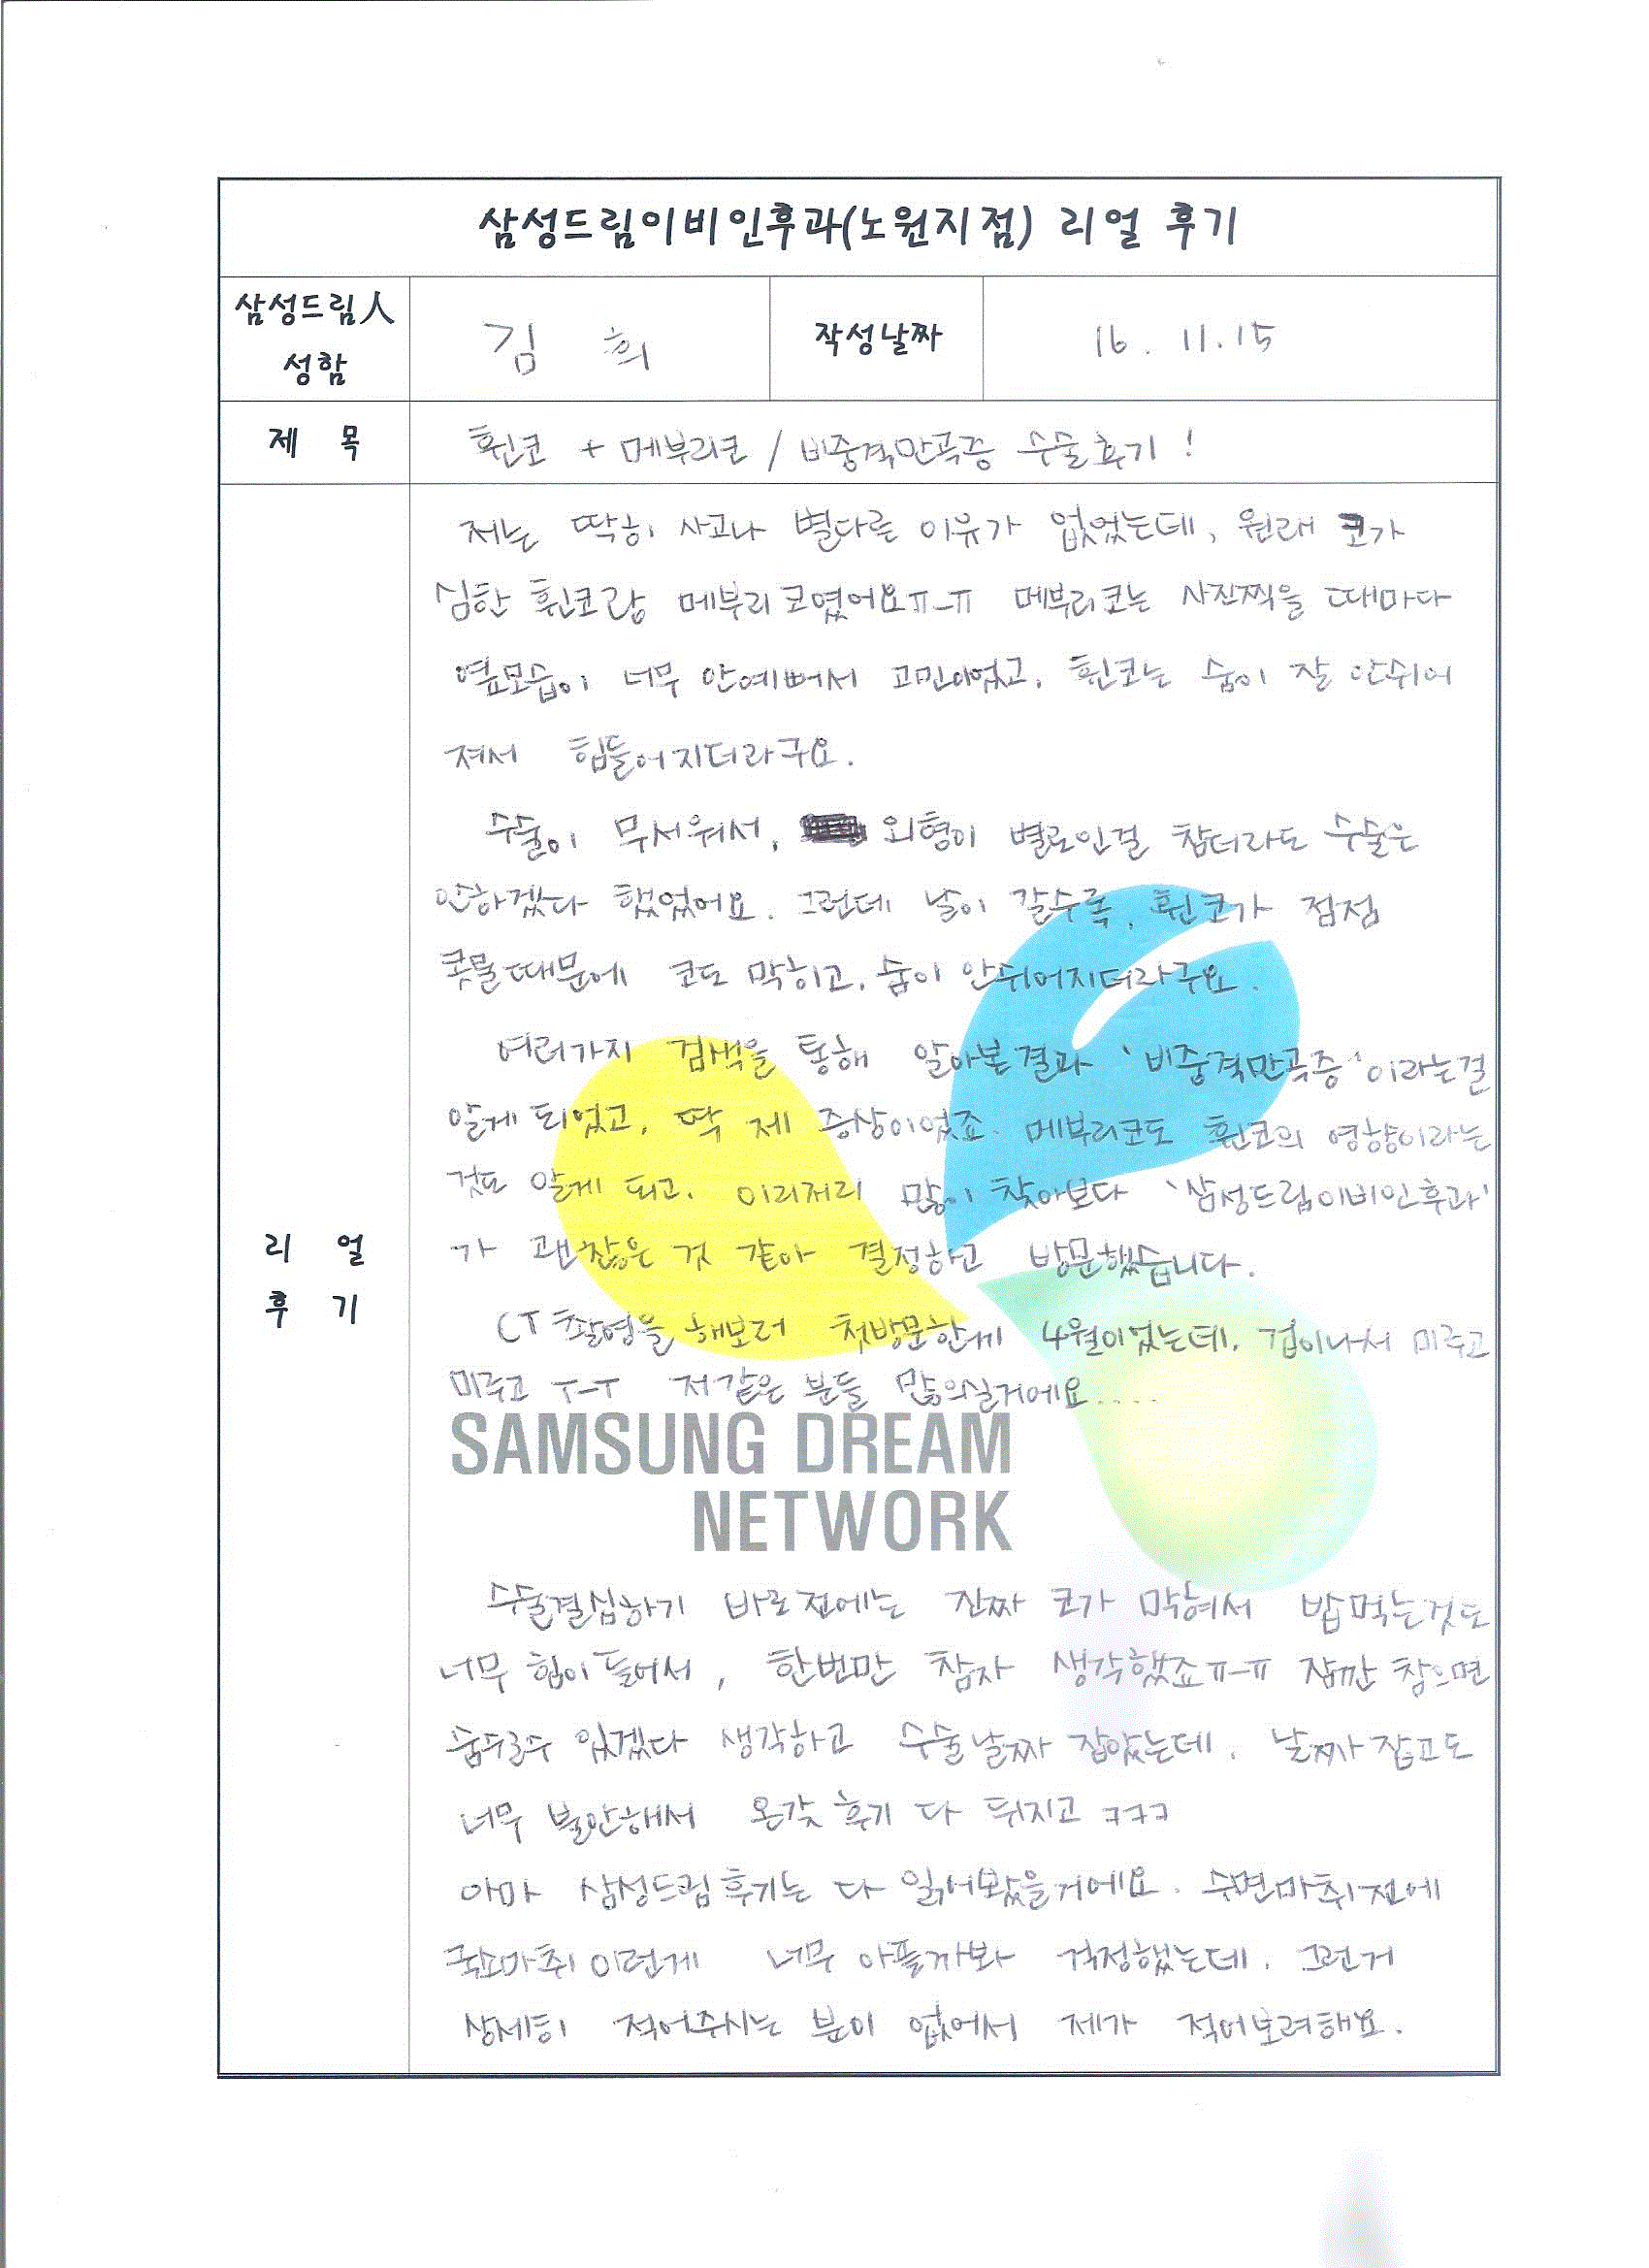 삼성드림이비인후과(노원지점) 리얼 후기
삼성드림人 성함
김 희
작성날짜
16. 11. 15
제 목
휜코 + 메부리코 / 비중격만곡증 수술후기!
리 얼 후 기
저는 딱히 사고나 별다른 이유가 없었는데, 원래 코가
심한 휜코랑 메부리코였어요ㅠ_ㅠ 메부리코는 사진찍을 때마다
옆모습이 너무 안예뻐서 고민이었고, 휜코는 숨이 잘 안쉬어
져서 힘들어지더라구요.
수술이 무서워서, 외형이 별로인걸 참더라도 수술은
안하겠다 했었어요. 그런데 날이 갈수록, 휜코가 점점
콧물때문에 코도 막히고, 숨이 안쉬어지더라구요.
여러가지 검색을 통해 알아본결과 '비중격만곡증'이라는걸
알게 되었고, 딱 제 증상이었죠. 메부리코도 휜코의 영향이라는
것도 알게 되고, 이리저리 많이 찾아보다 '삼성드림이비인후과'
가 괜찮은 것 같아 결정하고 방문했습니다.
CT촬영을 해보러 첫방문한게 4월이었는데, 겁이나서 미루고
미루고 ㅜ-ㅜ 저같은 분들 많으실거에요....
SAMSUNG DREAM
NETWORK
수술결심하기 바로전에는 진짜 코가 막혀서 밥먹는것도
너무 힘이들어서, 한번만 참자 생각했죠ㅠ_ㅠ 잠깐 참으면
숨쉴수 있겠다 생각하고 수술날짜 잡았는데, 날짜잡고도
너무 불안해서 온갖 후기 다 뒤지고 ㅋㅋㅋ
아마 삼성드림후기는 다 읽어봤을거에요. 수면마취전에
국소마취 이런게 너무 아플까봐 걱정했는데, 그런거
상세히 적어주시는 분이 없어서 제가 적어보려해요.